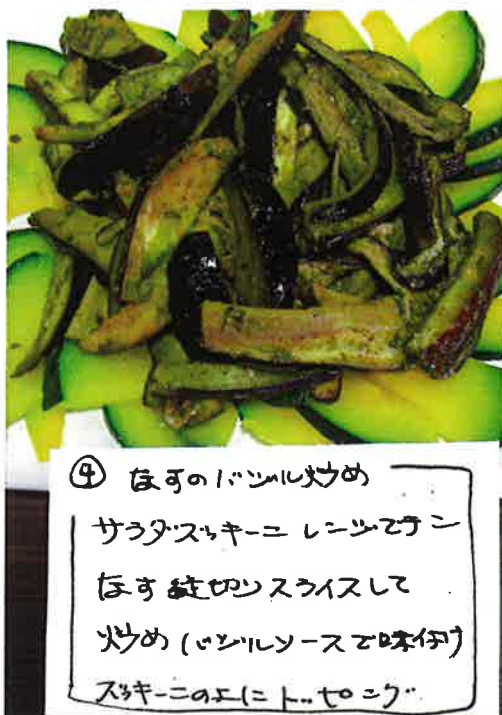 ④ なすのバジル炒め
サラダズッキーニ レンジでチン
なす 縦切りスライスして
炒め (バジルソースで味付け
ズッキーニの上に トッピング